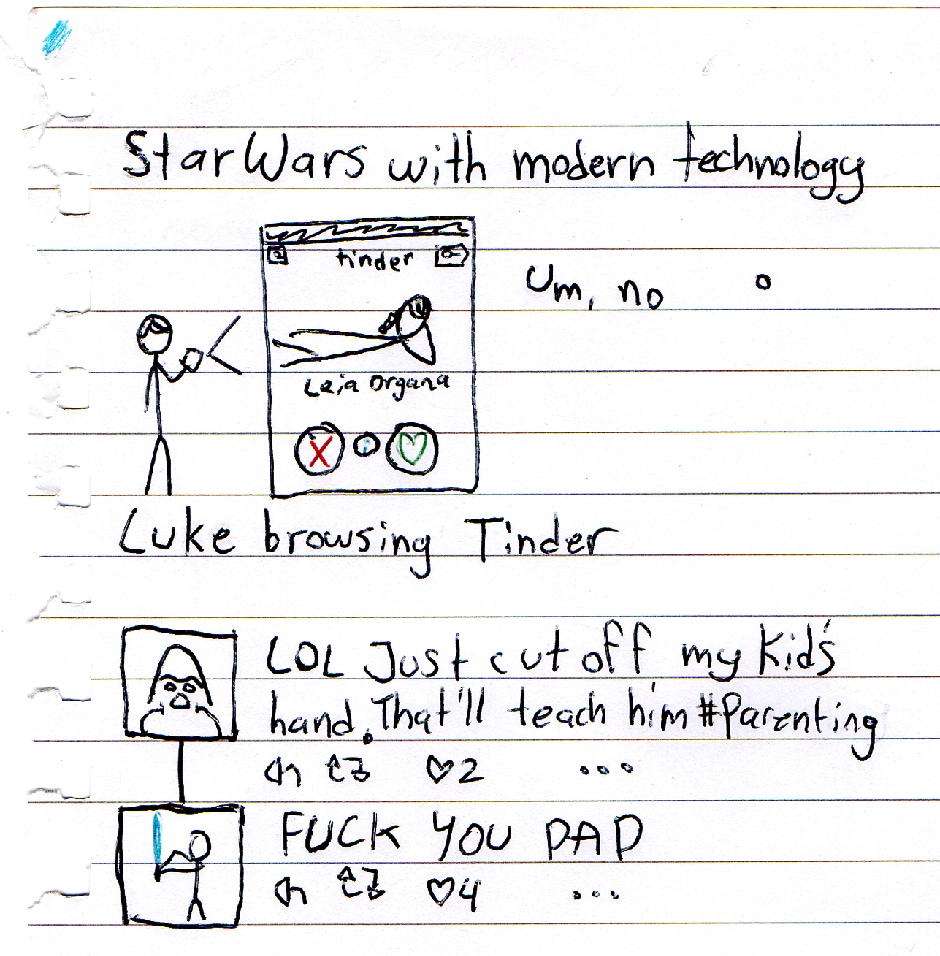 Star Wars with modern technology
tinder
Um, no
Leia Organa
X
Luke browsing Tinder
LOL Just cut off my Kid's
hand. That'll teach him #Parenting
2
...
FUCK YOU DAD
4
...